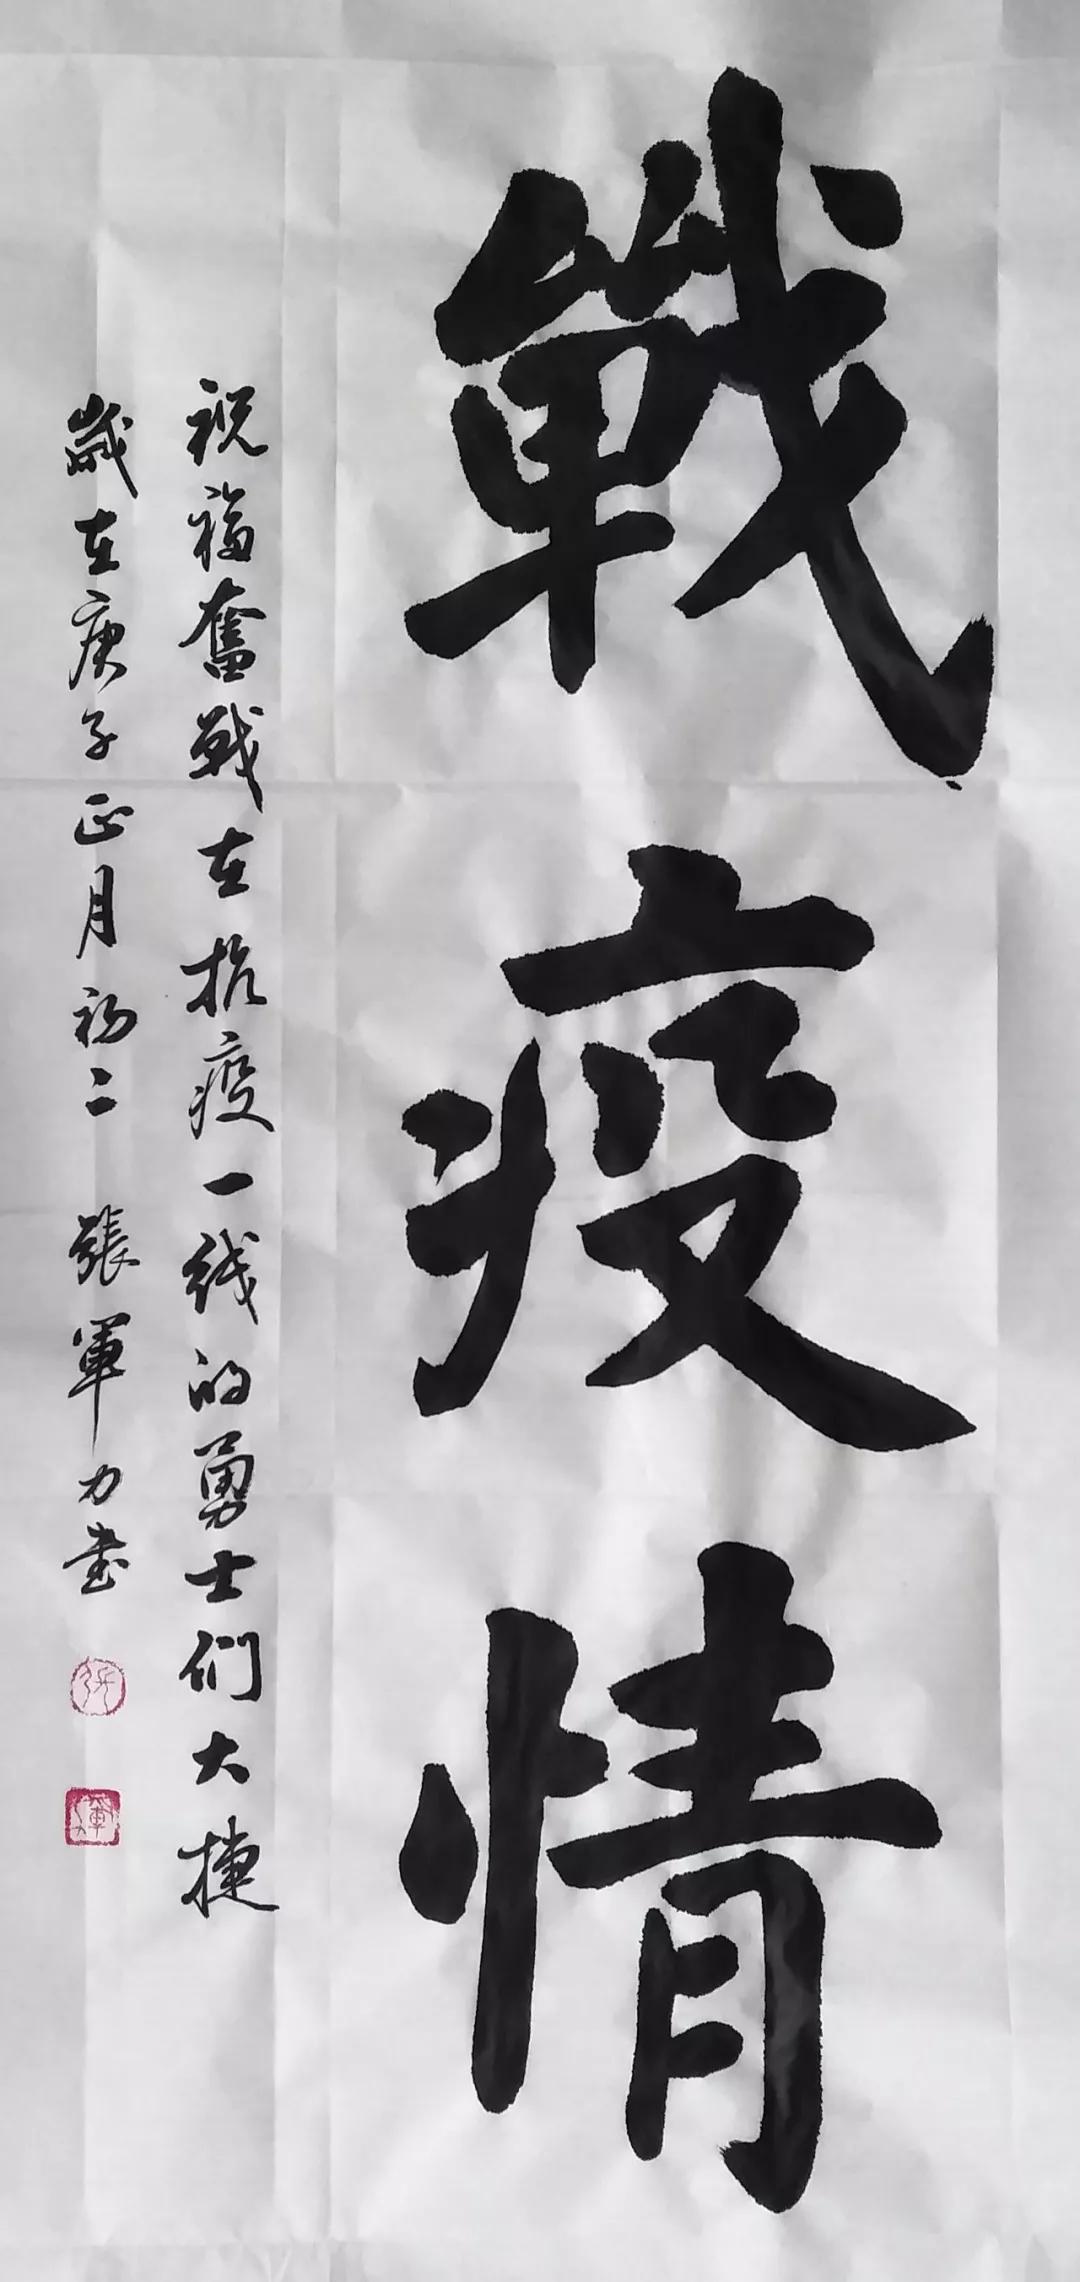 戰疫情
祝福奮战在抗疫一线的勇士们大捷
歲在庚子正月初二 張軍力书